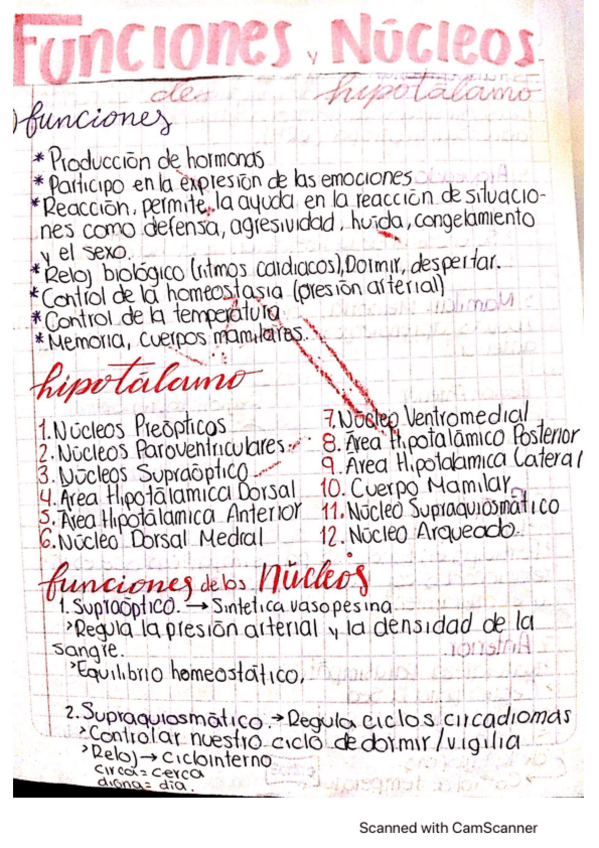 Funciones y Núcleos
del hipotálamo
funciones
* Producción de hormonas
* Participo en la expresión de las emociones
* Reacción, permite, la ayuda en la reacción de situacio-
nes como defensa, agresividad, huida, congelamiento
y el sexo.
* Reloj biológico (ritmos cardiacos), Dormir, despertar.
* Control de la homeostasia (presión arterial)
* Control de la temperatura
* Memoria, cuerpos mamilares.
hipotálamo
1. Núcleos Preópticos
2. Núcleos Paroventriculares
3. Núcleos Supraóptico
4. Area Hipotálamica Dorsal
5. Area Hipotálamica Anterior
6. Núcleo Dorsal Medral
7. Núcleo Ventromedial
8. Area Hipotalámico Posterior
9. Area Hipotalamica Lateral
10. Cuerpo Mamilar
11. Núcleo Supraquiosmático
12. Núcleo Arqueado
funciones de los Núcleos
1. Supraóptico. → Sintetica vasopesina
> Regula la presión arterial y la densidad de la
sangre.
> Equilibrio homeostático.
2. Supraquiosmático. → Regula ciclos circadiomas
> Controlar nuestro ciclo de dormir / vigilia
> Reloj → Ciclointerno
circa = cerca
digna = dia.
Scanned with CamScanner